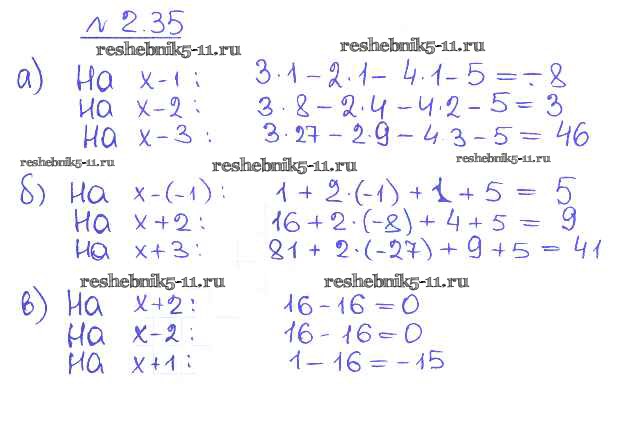 № 2.35
reshebnik5-11.ru reshebnik5-11.ru
а) На x-1 : 3·1 - 2·1 - 4·1 - 5 = -8
На x-2 : 3·8 - 2·4 - 4·2 - 5 = 3
На x-3 : 3·27 - 2·9 - 4·3 - 5 = 46
reshebnik5-11.ru reshebnik5-11.ru reshebnik5-11.ru
б) На x-(-1) : 1 + 2·(-1) + 1 + 5 = 5
На x+2 : 16 + 2·(-8) + 4 + 5 = 9
На x+3 : 81 + 2·(-27) + 9 + 5 = 41
reshebnik5-11.ru reshebnik5-11.ru
в) На x+2 : 16 - 16 = 0
На x-2 : 16 - 16 = 0
На x+1 : 1 - 16 = -15